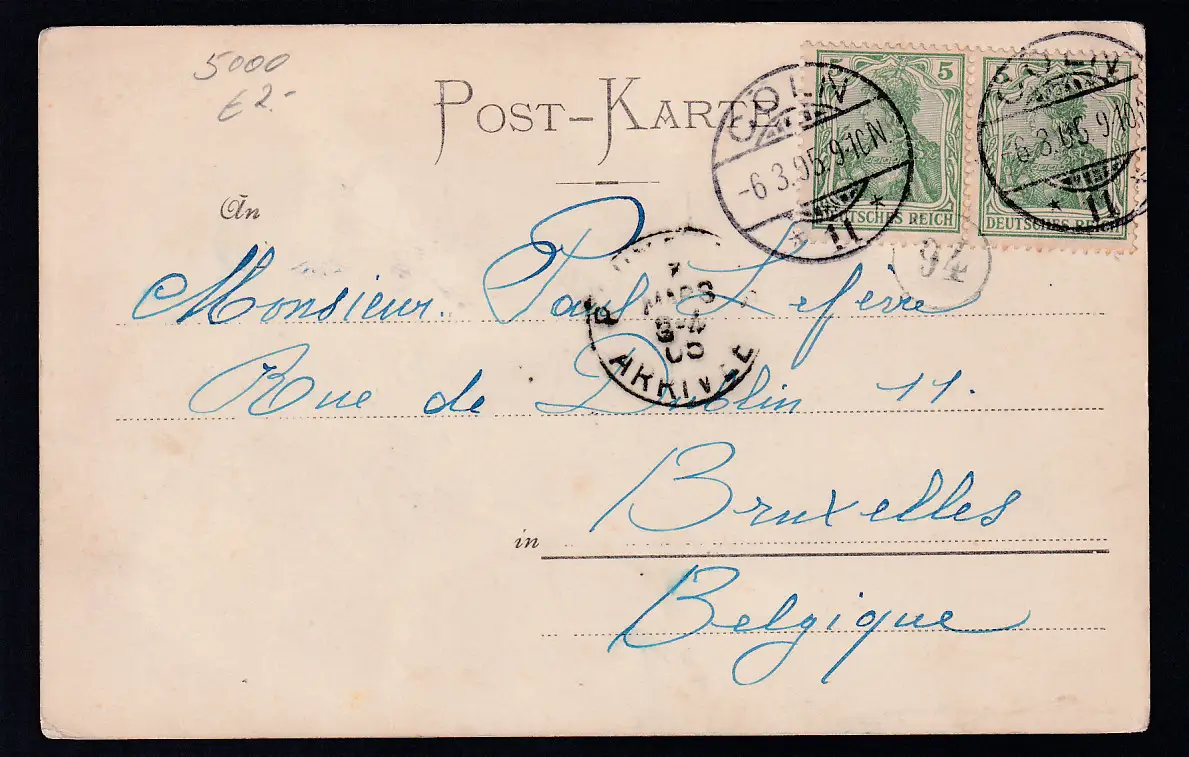 5000
€2.-
POST-KARTE
5
DEUTSCHES REICH
DEUTSCHES REICH
CÖLN
-6.3.05.9-10N.
* 11 *
CÖLN
-6.3.05.9-10
* 11 *
94
An
Monsieur. Paul Lefèvre
7
MARS
05
ARRIVEE
Rue de Dublin 11.
in Bruxelles
Belgique